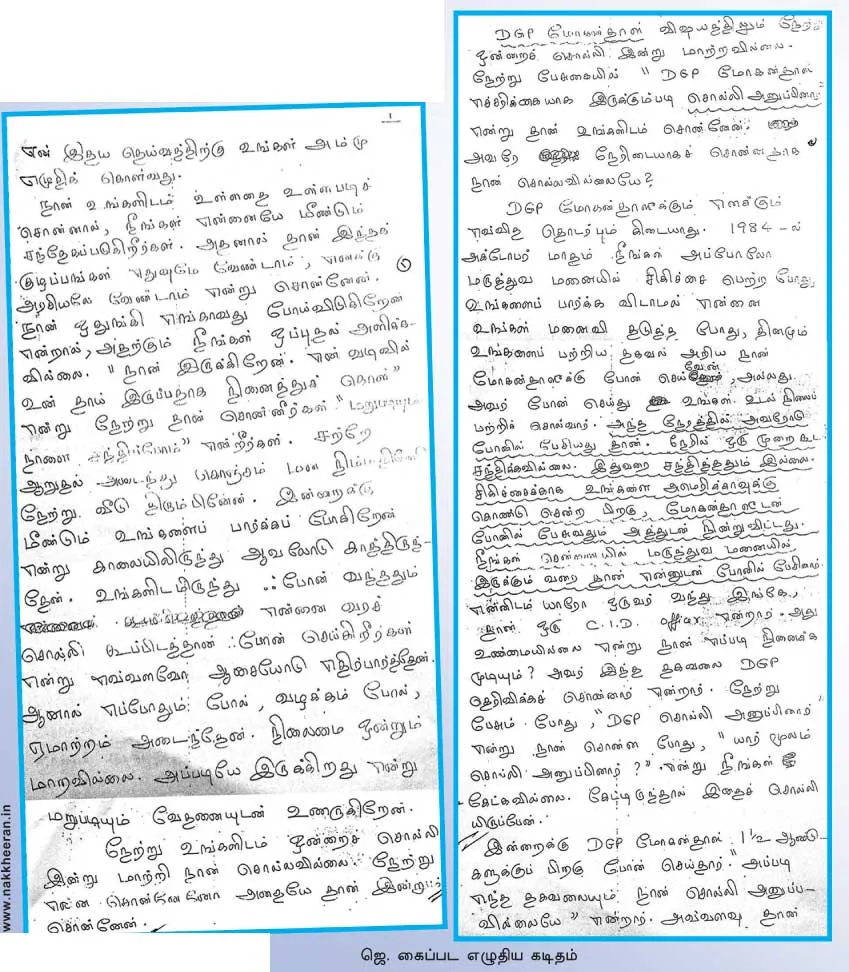 1
என் இதய தெய்வத்திற்கு உங்கள் அம்மு
எழுதிக் கொள்வது.
நான் உங்களிடம் உள்ளதை உள்ளபடிச்
சொன்னால், நீங்கள் என்னையே மீண்டும்
சந்தேகப்படுகிறீர்கள். அதனால் தான் இந்தக்
குழப்பங்கள் எதுவுமே வேண்டாம், எனக்கு
அரசியலே வேண்டாம் என்று சொன்னேன்.
நான் ஒதுங்கி எங்காவது போய்விடுகிறேன்
என்றால், அதற்கும் நீங்கள் ஒப்புதல் அளிக்க-
வில்லை. "நான் இருக்கிறேன். என் வடிவில்
உன் தாய் இருப்பதாக நினைத்துக் கொள்"
என்று நேற்று தான் சொன்னீர்கள் "மறுபடியும்
நாளை சந்திப்போம்" என்றீர்கள். சற்றே
ஆறுதல் அடைந்து கொஞ்சம் மன நிம்மதியோடு
நேற்று வீடு திரும்பினேன். இன்றைக்கு
மீண்டும் உங்களைப் பார்க்கப் போகிறேன்
என்று காலையிலிருந்து ஆவலோடு காத்திருந்-
தேன். உங்களிடமிருந்து ஃபோன் வந்ததும்
என்னை வரச்
சொல்லி கூப்பிடத்தான் ஃபோன் செய்கிறீர்கள்
என்று எவ்வளவோ ஆசையோடு எதிர்பார்த்தேன்.
ஆனால் எப்போதும் போல், வழக்கம் போல்,
ஏமாற்றம் அடைந்தேன். நிலைமை ஒன்றும்
மாறவில்லை. அப்படியே இருக்கிறது என்று
மறுபடியும் வேதனையுடன் உணருகிறேன்.
நேற்று உங்களிடம் ஒன்றைச் சொல்லி
இன்று மாற்றி நான் சொல்லவில்லை. நேற்று
என்ன சொன்னேனோ அதையே தான் இன்றும்
சொன்னேன்.
DGP மோகன்தாஸ் விஷயத்திலும் நேற்று
ஒன்றைச் சொல்லி இன்று மாற்றவில்லை.
நேற்று பேசுகையில் "DGP மோகன்தாஸ்
எச்சரிக்கையாக இருக்கும்படி சொல்லி அனுப்பினார்"
என்று தான் உங்களிடம் சொன்னேன்.
அவரே நேரிடையாகச் சொன்னதாக
நான் சொல்லவில்லையே?
DGP மோகன்தாஸுக்கும் எனக்கும்
எவ்வித தொடர்பும் கிடையாது. 1984-ல்
அக்டோபர் மாதம் நீங்கள் அப்போலோ
மருத்துவ மனையில் சிகிச்சை பெற்ற போது,
உங்களைப் பார்க்க விடாமல் என்னை
உங்கள் மனைவி தடுத்த போது, தினமும்
உங்களைப் பற்றிய தகவல் அறிய நான்
மோகன்தாஸுக்கு போன் செய்வேன், அல்லது
அவர் போன் செய்து உங்கள் உடல் நிலைப்
பற்றிச் சொல்வார். அந்த நேரத்தில் அவரோடு
போனில் பேசியது தான். நேரில் ஒரு முறை கூட
சந்திக்கவில்லை. இதுவரை சந்தித்ததும் இல்லை.
சிகிச்சைக்காக உங்களை அமெரிக்காவுக்கு
கொண்டு சென்ற பிறகு, மோகன்தாஸுடன்
போனில் பேசுவதும் அத்துடன் நின்றுவிட்டது.
நீங்கள் சென்னையில் மருத்துவ மனையில்
இருக்கும் வரை தான் என்னுடன் போனில் பேசினார்.
என்னிடம் யாரோ ஒருவர் வந்து இங்கே,
நான் ஒரு C.I.D. officer என்றார். அது
உண்மையில்லை என்று நான் எப்படி நினைக்க
முடியும்? அவர் இந்த தகவலை DGP
தெரிவிக்கச் சொன்னார் என்றார். நேற்று
பேசும் போது, "DGP சொல்லி அனுப்பினார்"
என்று நான் சொன்ன போது, "யார் மூலம்
சொல்லி அனுப்பினார்?" என்று நீங்கள்
கேட்கவில்லை. கேட்டிருந்தால் இதைச் சொல்லி
யிருப்பேன்.
இன்றைக்கு DGP மோகன்தாஸ் 1½ ஆண்டு-
களுக்குப் பிறகு போன் செய்தார். "அப்படி
எந்த தகவலையும் நான் சொல்லி அனுப்ப-
வில்லையே" என்றார். அவ்வளவு தான்
www.nakkheeran.in
ஜெ. கைப்பட எழுதிய கடிதம்